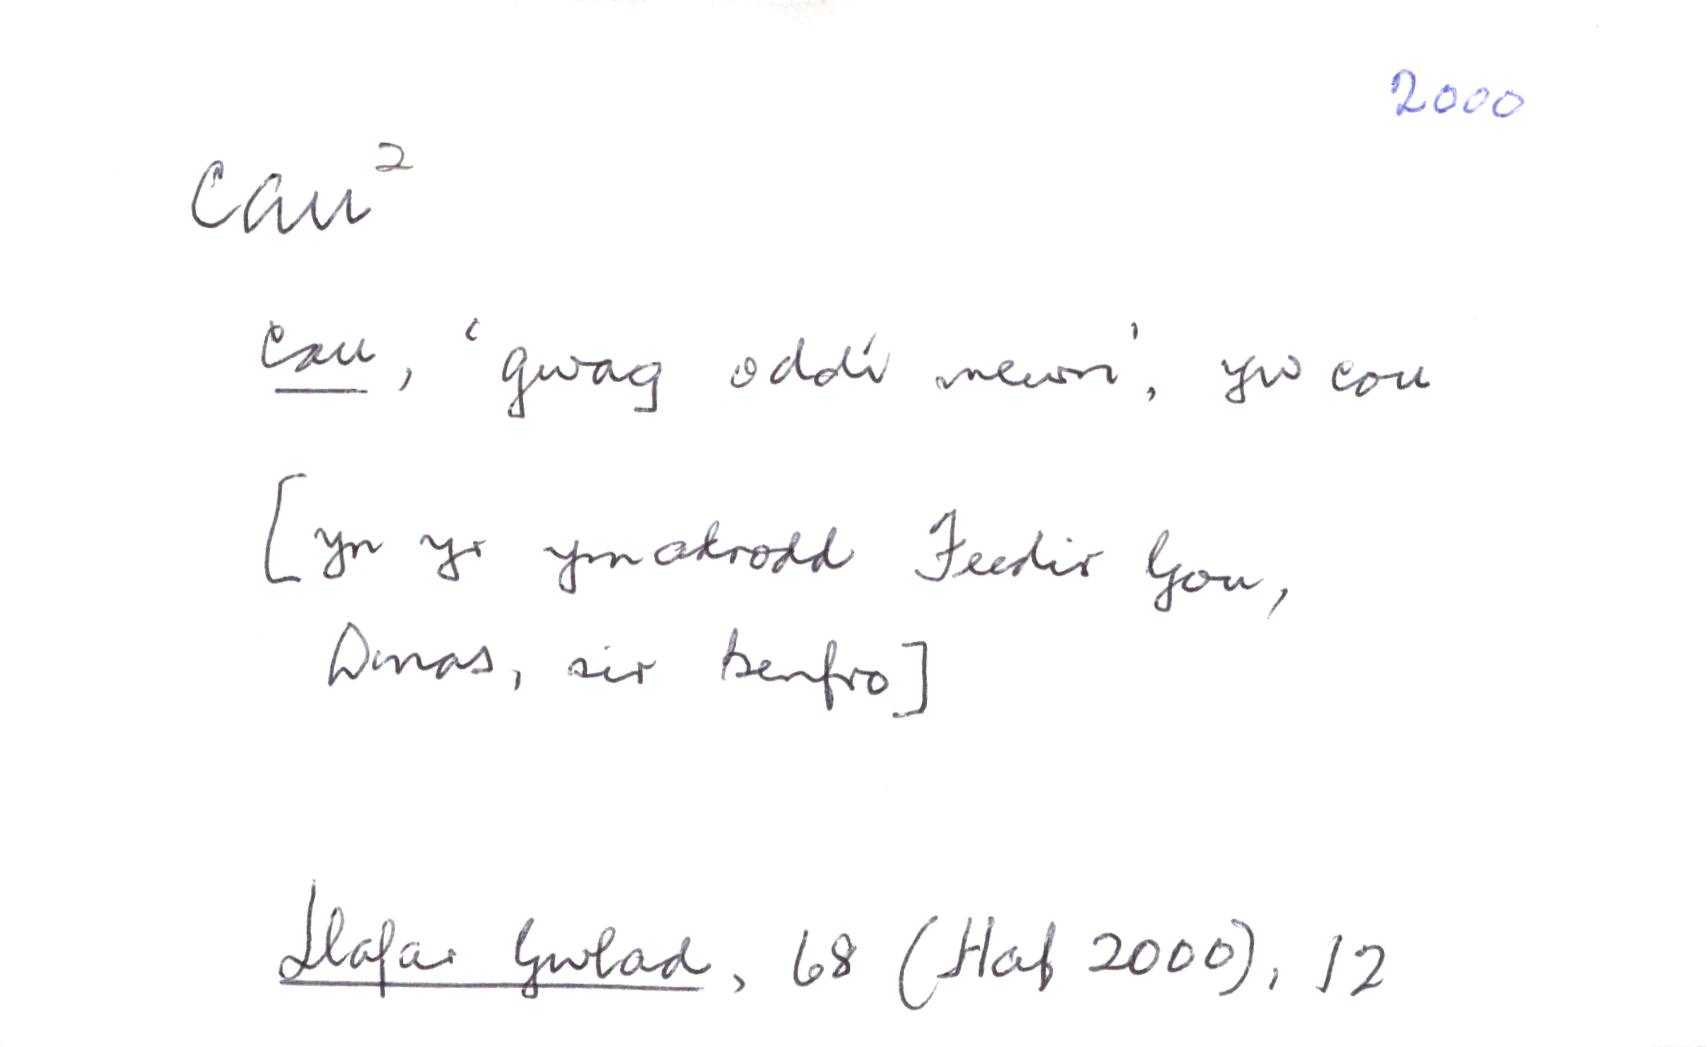 2000
cau²
cau, 'gwag oddi mewn', yw cou
[yn yr ymadrodd Feedir Gou,
Dinas, sir Benfro]
Llafar Gwlad, 68 (Haf 2000), 12